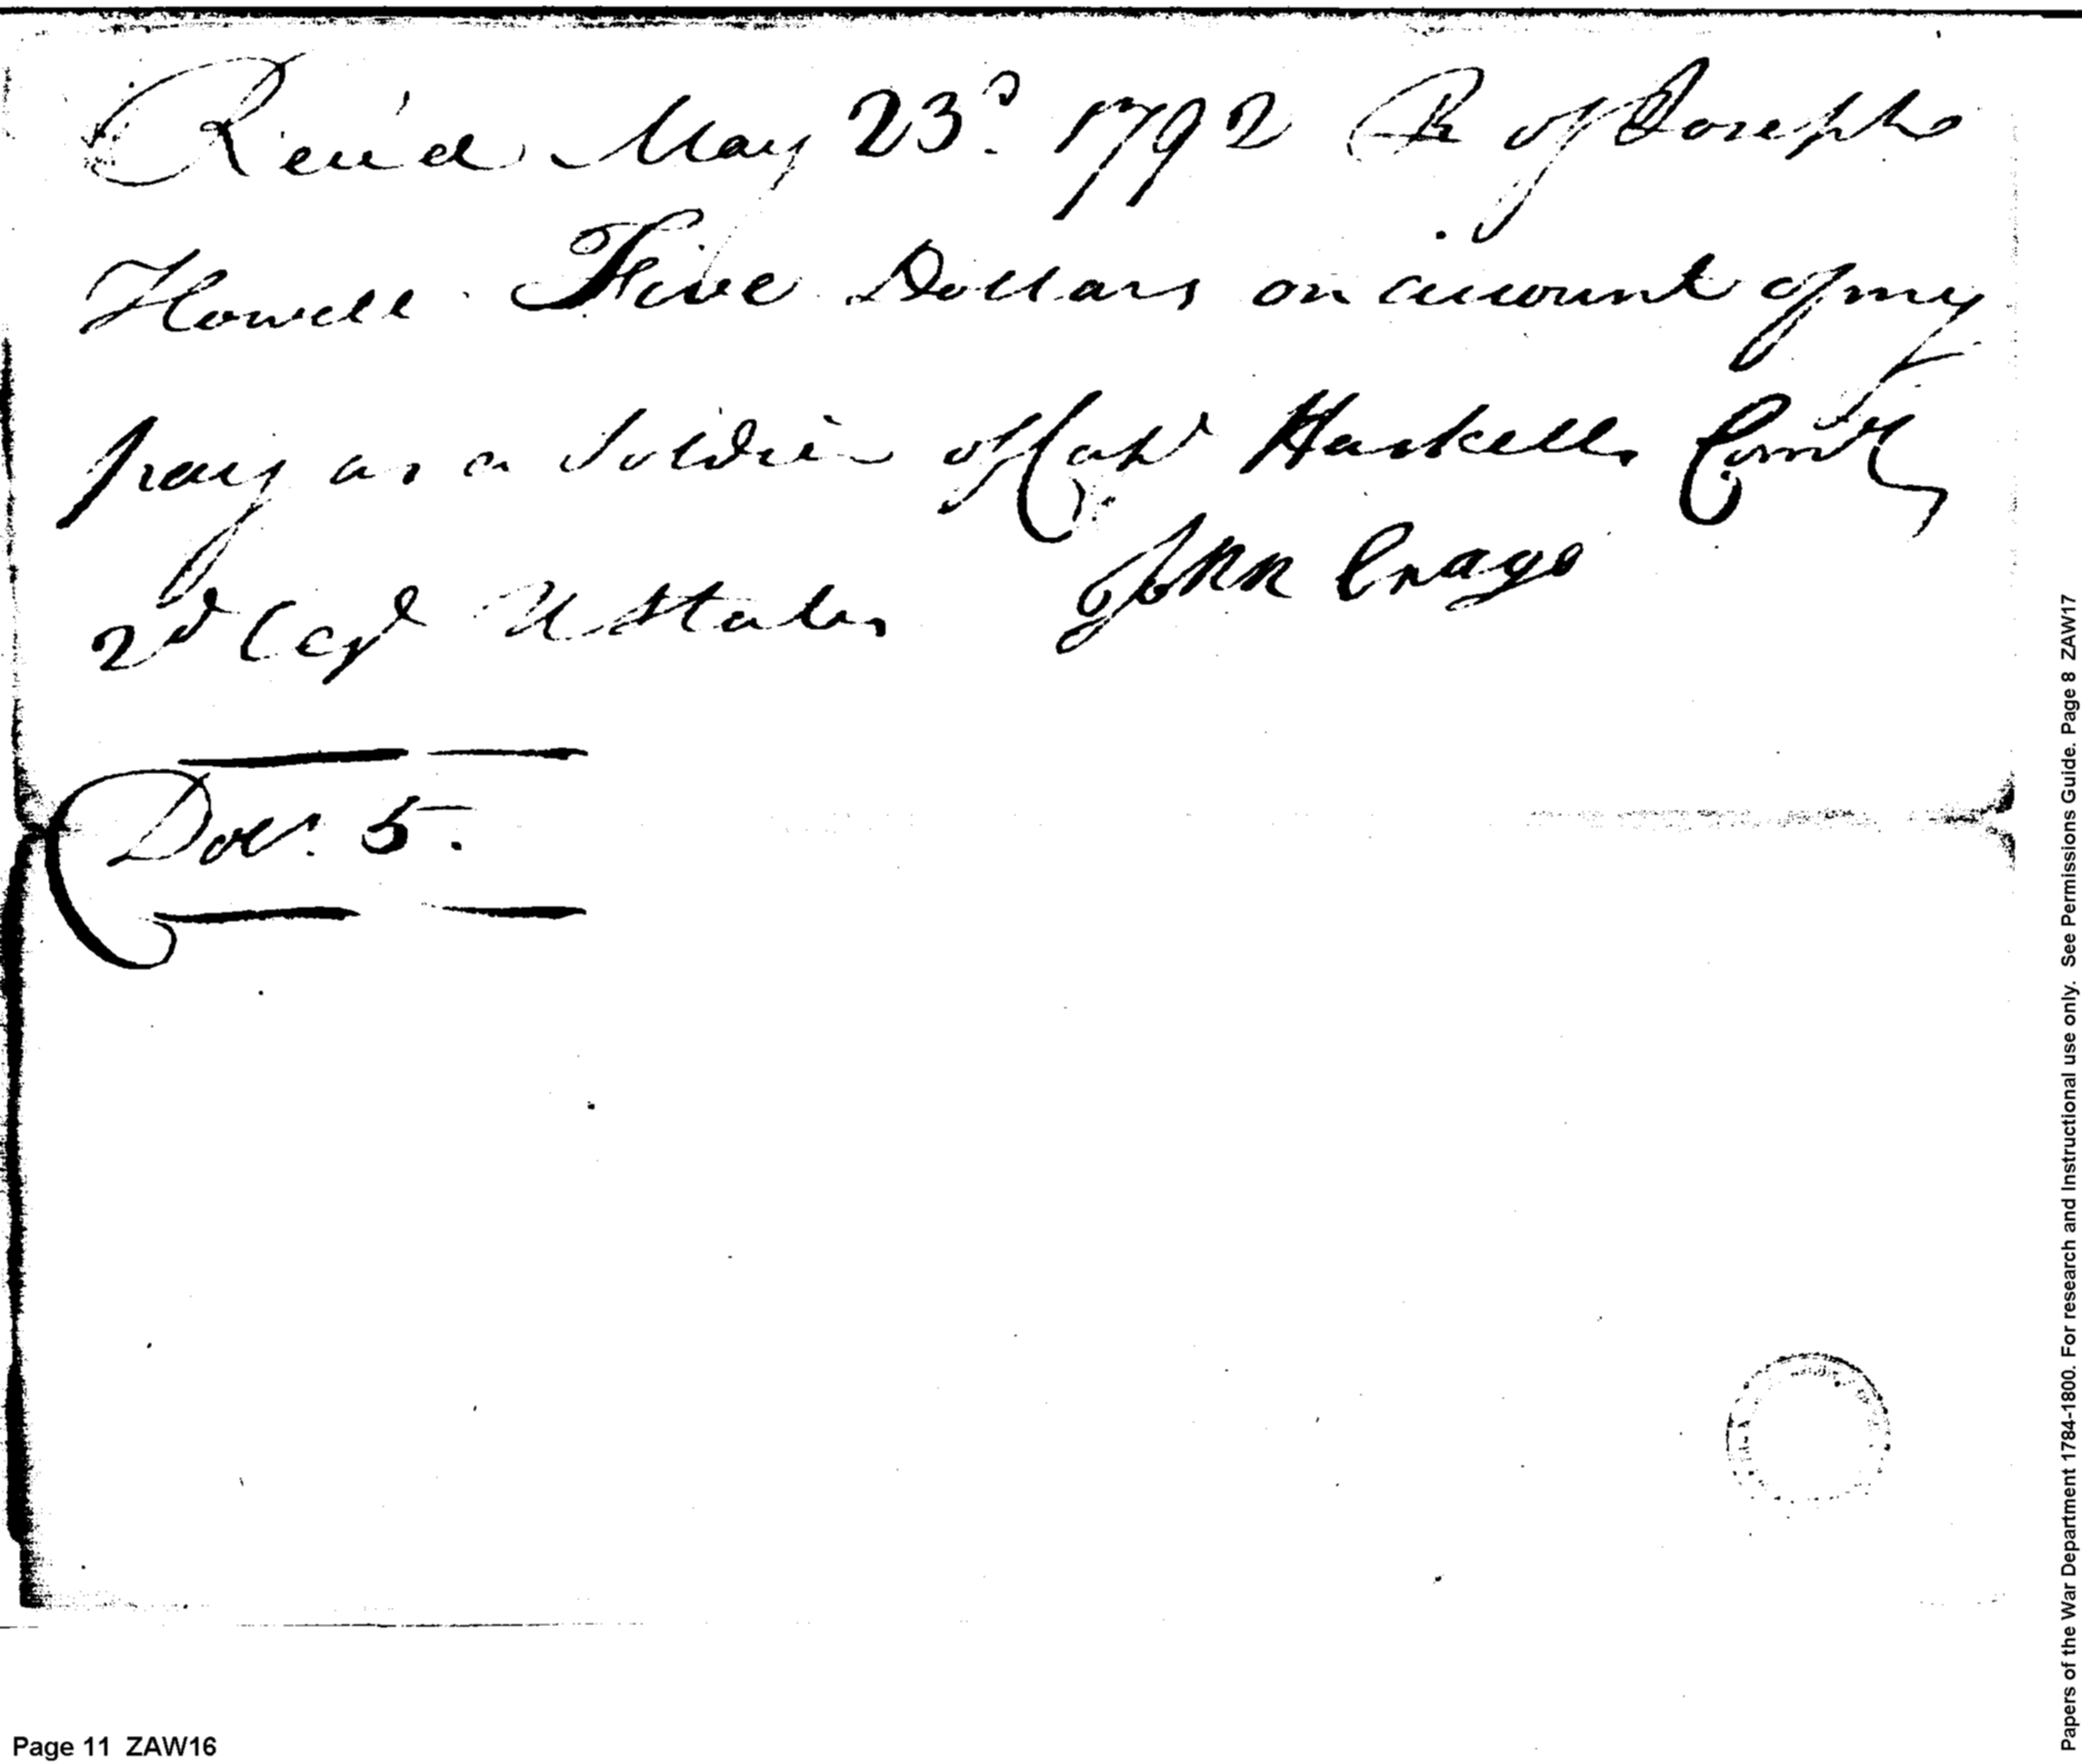 Rec'd May 23d. 1792 of Joseph
Howell Five Dollars on account of my
pay as a Soldier of Capt Haskells Comy
2d Regt U States John Crago
Dolls. 5.
Papers of the War Department 1784-1800. For research and Instructional use only. See Permissions Guide. Page 8 ZAW17
Page 11 ZAW16